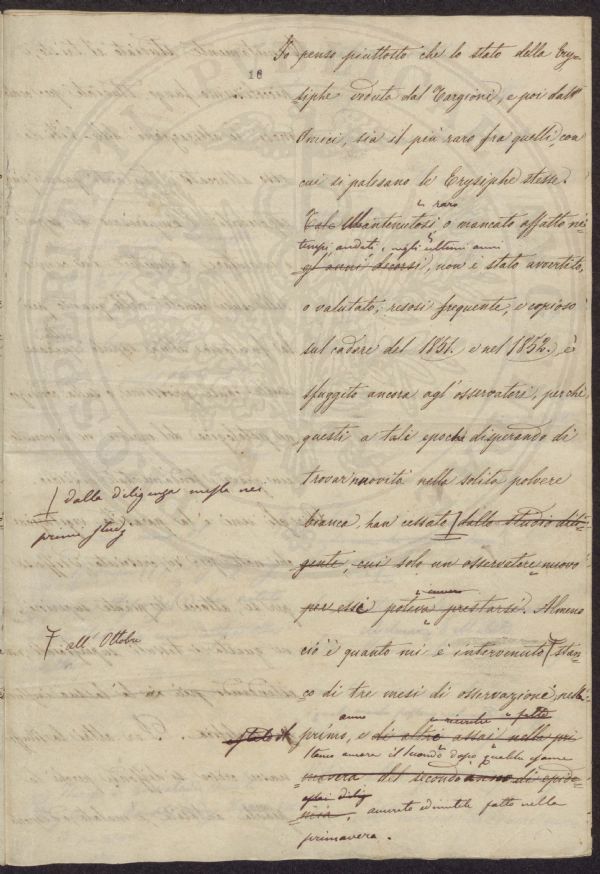 18
Io penso piuttosto che lo stato della Ery-
siphe veduto dal Targioni, e poi dall'
Amici, sia il più raro fra quelli, con
cui si palesano le Erysiphe stesse.
raro
Tale Mantenutosi o mancato affatto nei
tempi andati, negli ultimi anni
gl'anni decorsi, non è stato avvertito,
o valutato; resosi frequente, e copioso
sul cadere del 1851. e nel 1852. è
sfuggito ancora agl'osservatori, perchè
questi a tali epoche disperando di
trovar nuovità nella solita polvere
bianca, han cessato dallo studio dili-
gente, cui solo un osservatore nuovo
per essi poteva prestarsi. Almeno
ciò è quanto mi è intervenuto stan-
co di tre mesi di osservazione, nello
anno
primo, e di altri assai nella pri
stanco ancora il secondo dopo qualche esame
mavera del secondo anno di epide
assai dilig
mia, fatto nella
primavera.
dalla diligenza messa nei
primi studj
all' Ottobre